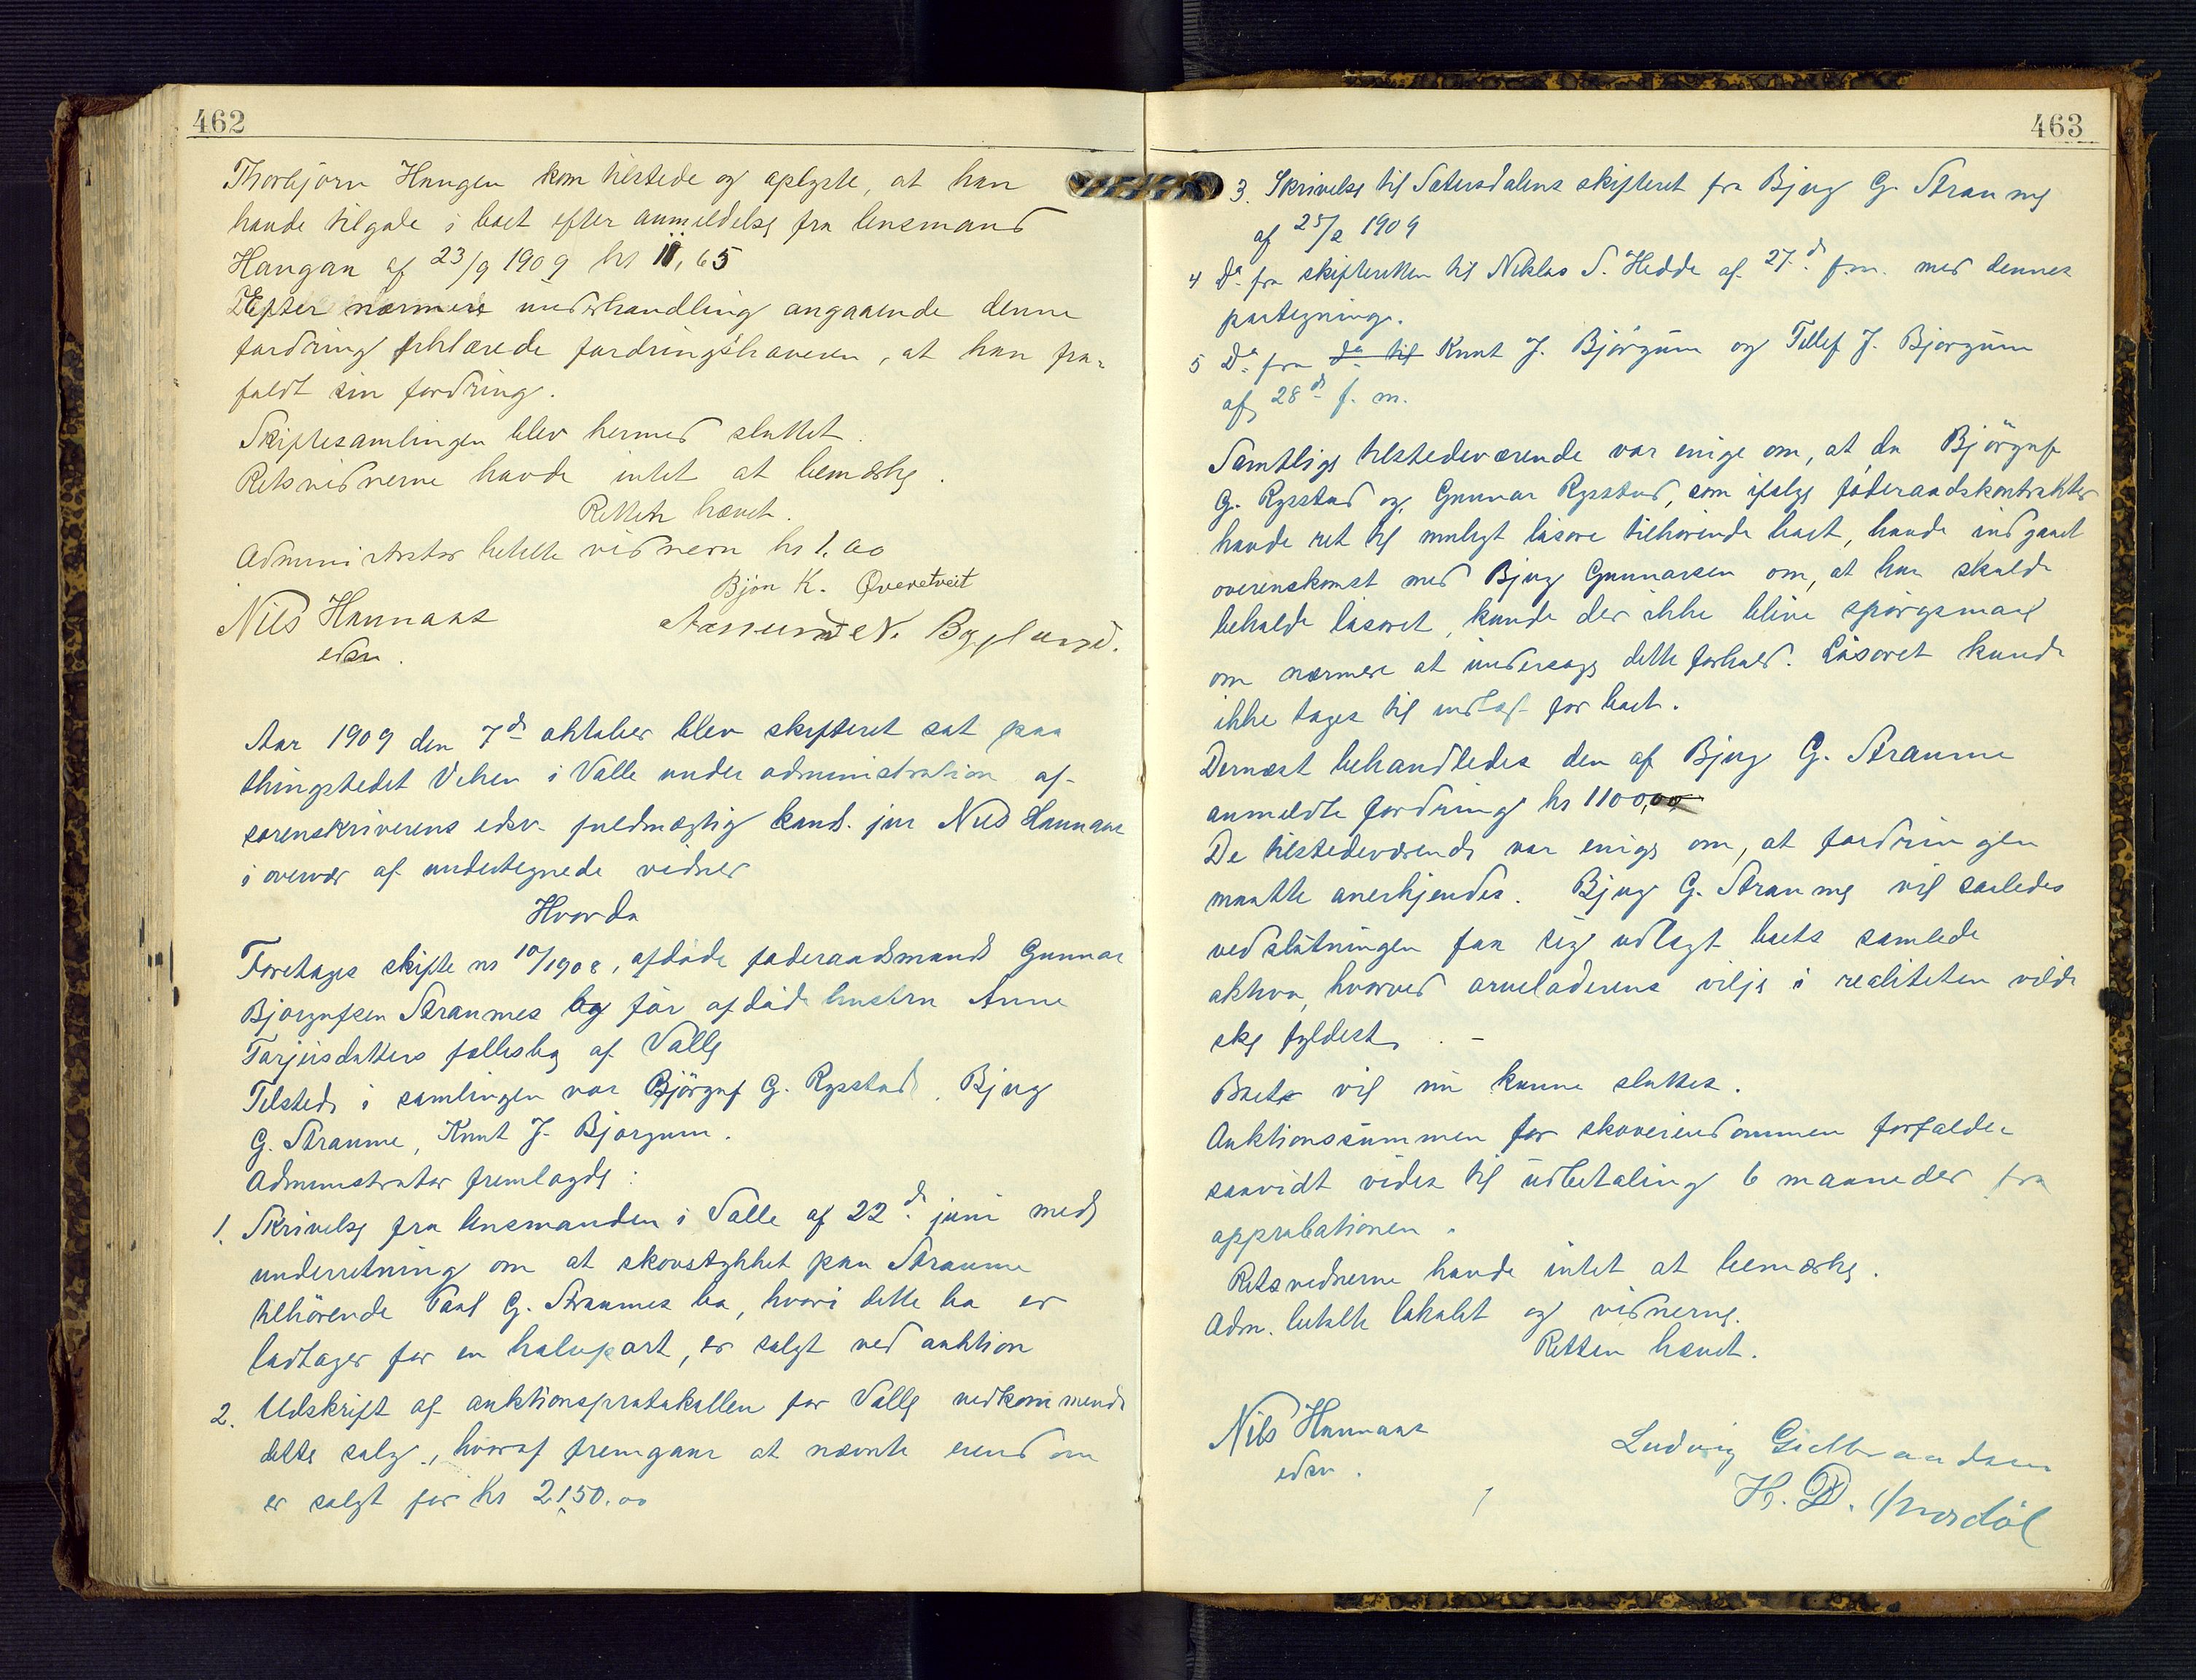 462
Thorbjörn Haugen kom tilstede og oplyste, at han
havde tilgode i boet efter anmeldelse fra lensmand
Haugan af 23/9 1909 kr 11,65
Efter nærmere underhandling angaaende denne
fordring erklærede fordringshaveren, at han fra-
faldt sin fordring.
Skiftesamlingen blev hermed sluttet.
Retsvidnerne havde intet at bemærke.
Retten hævet.
Administrator betalte vidnern kr 1.00
Bjön K. Qvevetveit
Nils Hannaas
Aasmund N. Bygland.
edsv.
Aar 1909 den 7de oktober blev skifteret sat paa
thingstedet Viken i Valle under administration af
sorenskriverens edsv. fuldmægtig kand. jur Nils Hannaas
i overvær af undertegnede vidner
Hvorda
Foretages skifte nr 10/1908, afdöde föderaadsmand Gunnar
Bjørgufsen Straumes og før afdøde hustru Anne
Torjusdatters fællesbo af Valle
Tilstede i samlingen var Björguf G. Rysstad, Bjug
G. Straume, Knut J. Bjørgum.
Administrator fremlagde:
1. Skrivelse fra lensmanden i Valle af 22de juni med
underretning om at skovstykket paa Straume
tilhörende Paal G. Straumes bo, hvori dette bo er
lodtager for en halvpart, er solgt ved auktion
2. Udskrift af auktionsprotokollen for Valle vedkommende
dette salg, hvoraf fremgaar at nævnte eiendom
er solgt for kr 2150.00
463
3. Skrivelse til Sætersdalens skifteret fra Bjug G. Straume
af 25/2 1909
4 Do fra skifteretten til Niklas S. Hedde af 27de f.m. med dennes
paategning.
5 Do fra do til Knut J. Björgum og Tellef J. Bjørgum
af 28de f. m.
Samtlige tilstedeværende var enige om, at da Björguf
G. Rysstad og Gunnar Rysstad, som ifølge föderaadskontrakter
havde ret til muligt løsøre tilhørende boet, havde indgaaet
overenskomst med Bjug Gunnarsen om, at han skulde
beholde løsøret, kunde der ikke blive spörgsmaal
om nærmere at undersøge dette forhold. Løsøret kunde
ikke tages til indtægt for boet.
Dernæst behandledes den af Bjug G. Straume
anmeldte fordring kr 1100,00
De tilstedeværende var enige om, at fordringen
maatte anerkjendes. Bjug G. Straume vil saaledes
ved slutningen faa sig udlagt boets samlede
aktiva, hvorved arveladerens vilje i realiteten vilde
ske fyldest. –
Boet vil nu kunne sluttes.
Auktionssummen for skoveiendommen forfalder
saavidt vides til udbetaling 6 maaneder fra
approbationen.
Retsvidnerne havde intet at bemærke.
Adm. betalte lokalet og vidnerne.
Retten hævet.
Nils Hannaas
Ludvig Gulbrandsen
edsv.